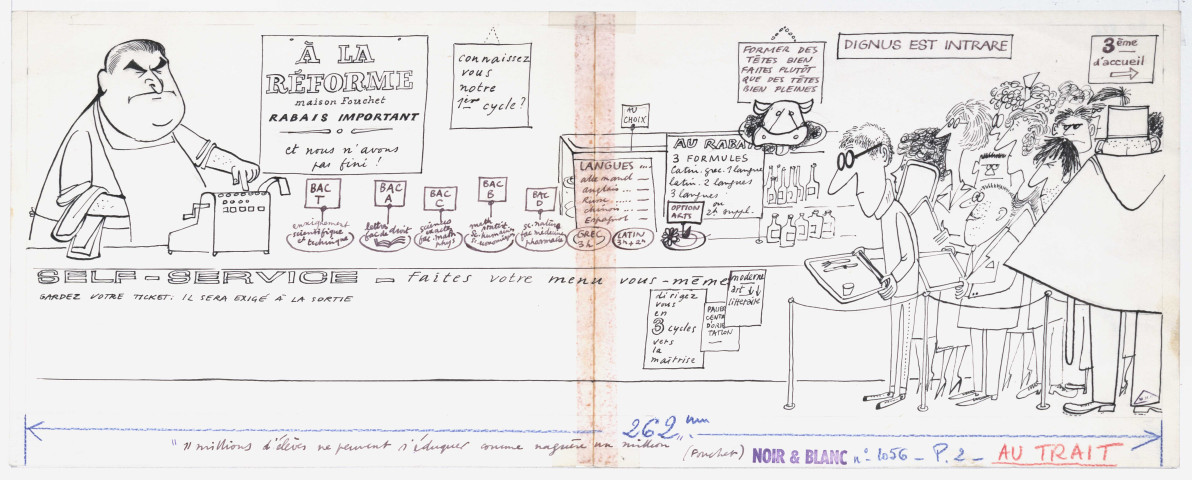 À LA
RÉFORME
maison Fouchet
RABAIS IMPORTANT
et nous n'avons
pas fini !
connaissez
vous
notre
1er cycle ?
FORMER DES
TÊTES BIEN
FAITES PLUTÔT
QUE DES TÊTES
BIEN PLEINES
DIGNUS EST INTRARE
3ème
d'accueil
AU
CHOIX
LANGUES
allemand
anglais
Russe
chinois
Espagnol
GREC
3h
LATIN
3h + 2h
AU RABAIS
3 FORMULES
Latin. grec. 1 langue
latin. 2 langues
3 langues
ou
2h suppl.
OPTION
ARTS
BAC
T
enseignement
scientifique
et technique
BAC
A
lettres
fac de droit
BAC
C
sciences
exactes
fac. math
phys
BAC
B
math
BAC
D
sc. nature
fac médecine
pharmacie
SELF-SERVICE - Faites votre menu vous-même
GARDEZ VOTRE TICKET : IL SERA EXIGÉ À LA SORTIE
moderne
art
littéraire
dirigez
vous
en
3 cycles
vers
la
maîtrise
CENTR
D'ORIEN
TATION
262 mm
"11 millions d'élèves ne peuvent s'éduquer comme naguère un million" (Fouchet)
NOIR & BLANC n° 1056 - P. 2 - AU TRAIT